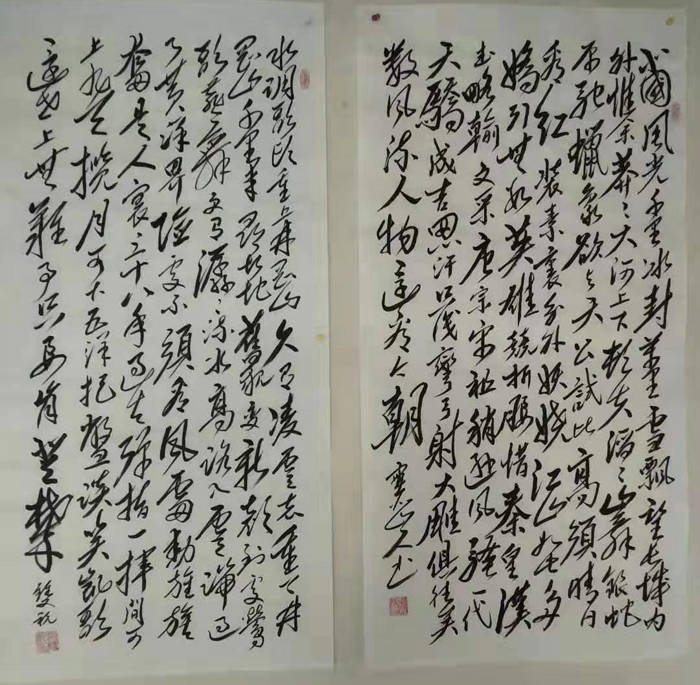 北國风光千里冰封萬里雪飘望长城内
外惟余莽莽大河上下顿失滔滔山舞银蛇
原驰蜡象欲与天公试比高须晴日
看红装素裹分外妖娆江山如此多
娇引无数英雄竞折腰惜秦皇漢
武略输文采唐宗宋祖稍逊风骚一代
天驕成吉思汗只识弯弓射大雕俱往矣
数风流人物还看今朝
水调歌头重上井冈山久有凌雲志重上井
冈山千里来寻故地舊貌变新颜到处莺
歌燕舞更有潺潺流水高路入雲端过
了黄洋界险处不须看风雷動旌旗
奮是人寰三十八年过去弹指一挥间可
上九天揽月可下五洋捉鳖谈笑凯歌
还世上無難事只要肯登攀